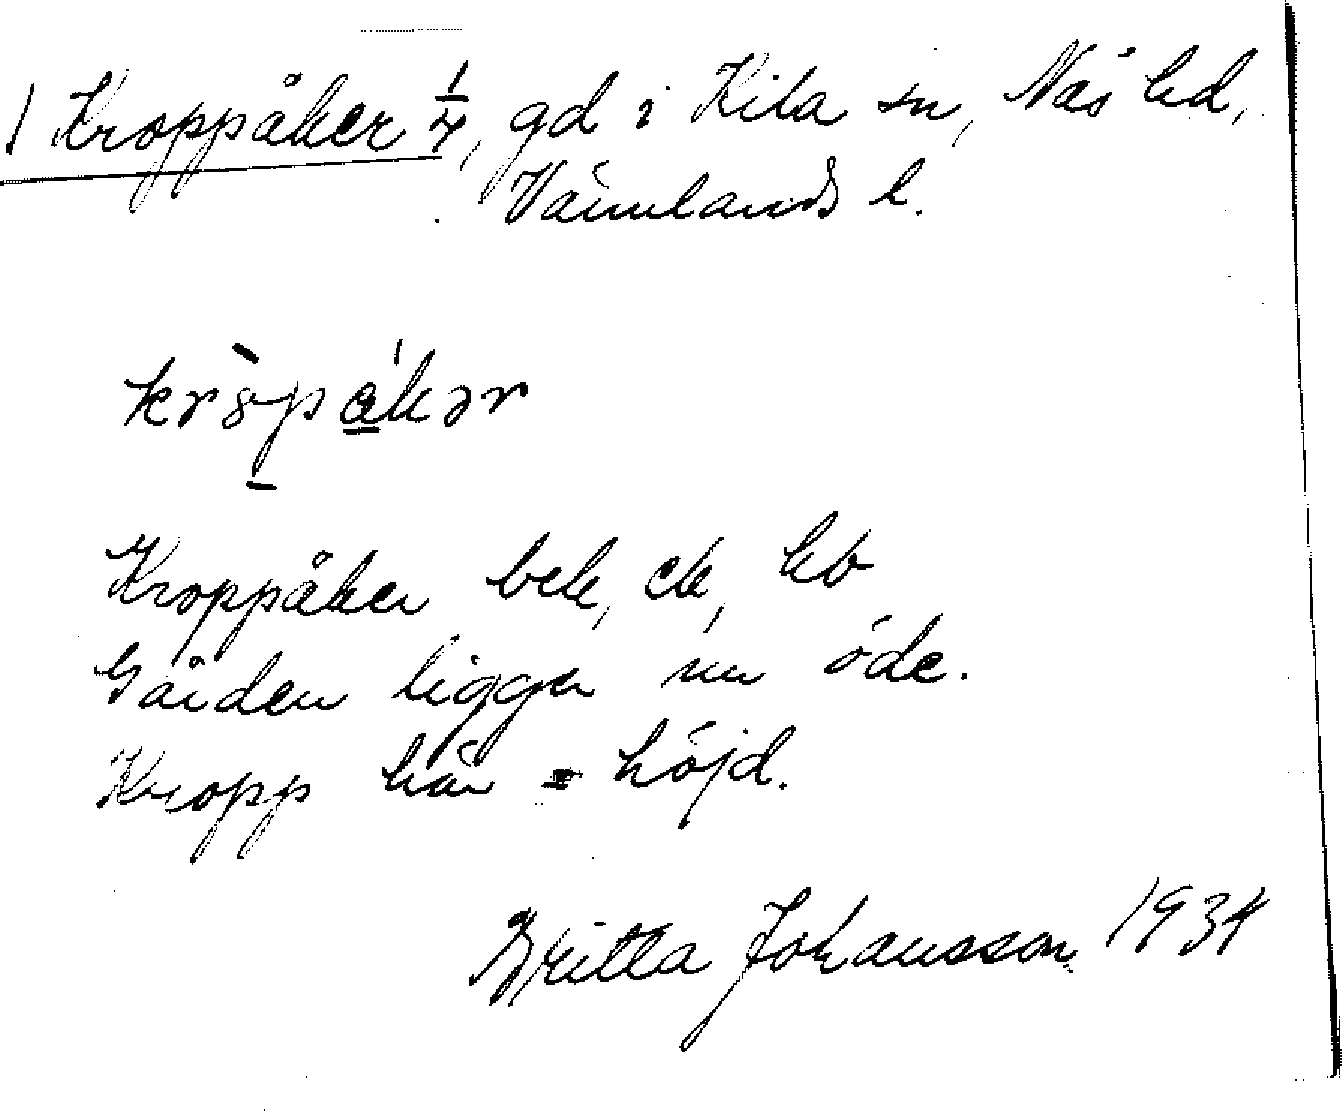 1 Kroppåker 1/4, gd i Kila sn, Näs hd,
Värmlands l.
kròpåkər
Kroppåker bek, ek, kb
Gården ligger nu öde.
Kropp här = höjd.
Britta Johansson 1934